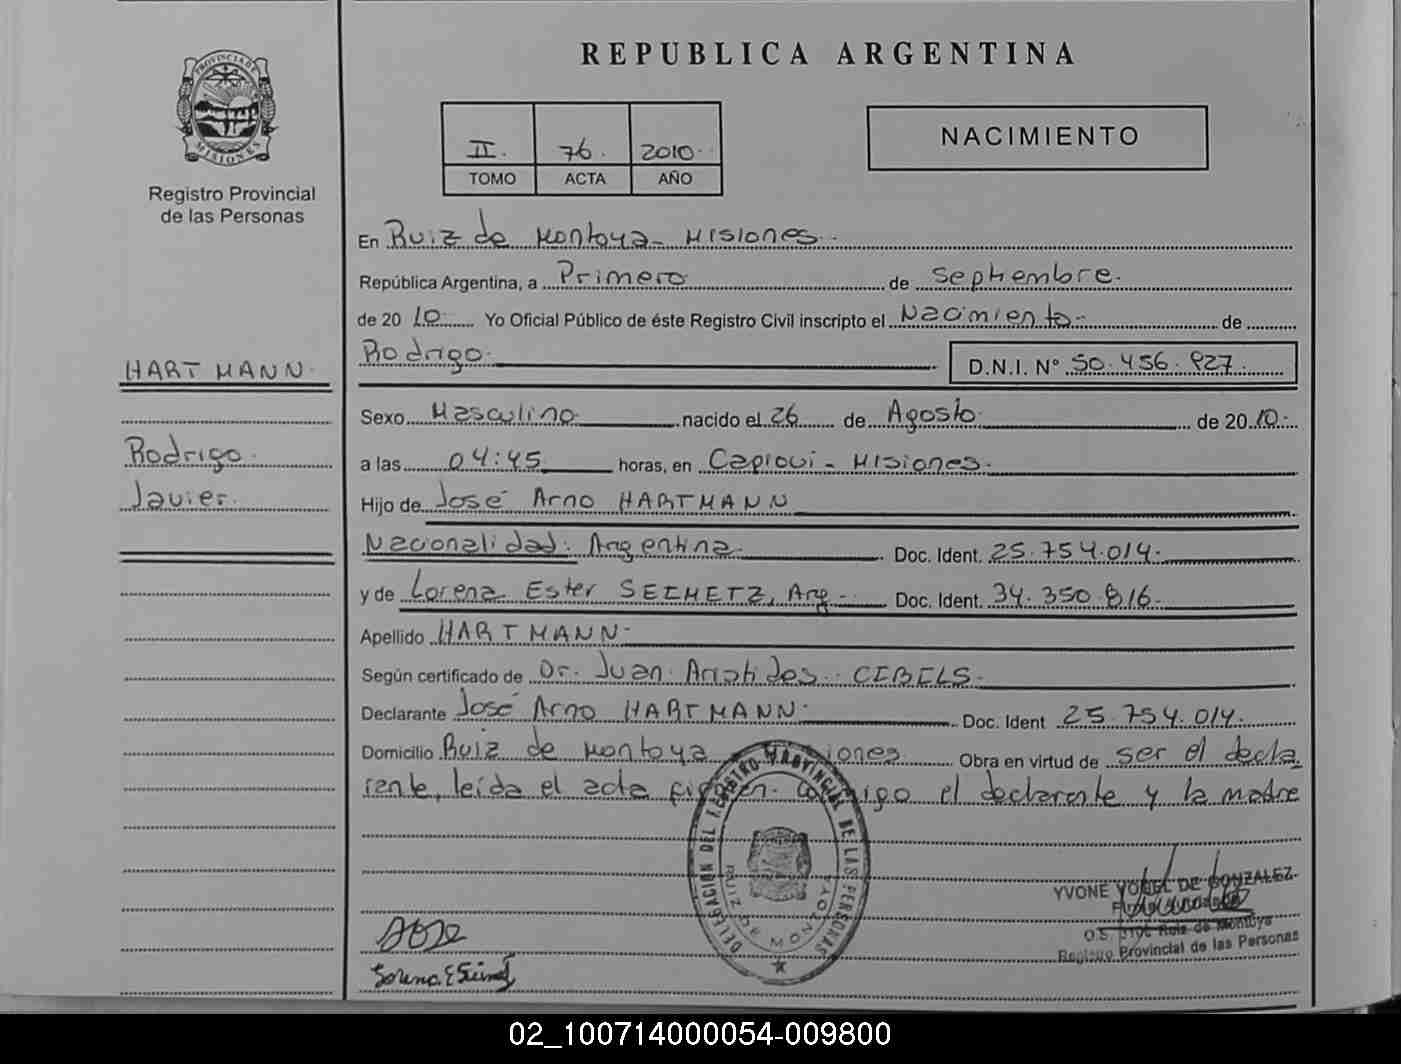 PROVINCIA DE
MISIONES
Registro Provincial
de las Personas
HARTMANN
Rodrigo
Javier
REPUBLICA ARGENTINA
II. 76. 2010
TOMO ACTA AÑO
NACIMIENTO
En Ruiz de Montoya - Misiones.
República Argentina, a Primero de Septiembre.
de 2010 Yo Oficial Público de éste Registro Civil inscripto el Nacimiento de
Rodrigo D.N.I. Nº 50.456.827
Sexo Masculino nacido el 26 de Agosto de 2010
a las 04:45 horas, en Capiovi - Misiones.
Hijo de José Arno HARTMANN
Nacionalidad: Argentina Doc. Ident. 25.754.014.
y de Lorena Ester SEIMETZ, Arg. Doc. Ident. 34.350.816
Apellido HARTMANN
Según certificado de Dr. Juan Aristides CIBELS.
Declarante José Arno HARTMANN Doc. Ident 25.754.014.
Domicilio Ruiz de Montoya Misiones Obra en virtud de ser el decla
rante, leída el acta firman conmigo el declarante y la madre
DELEGACION DEL REGISTRO PROVINCIAL DE LAS PERSONAS
RUIZ DE MONTOYA
YVONE DE GONZALEZ
O.S. Ruiz de Montoya
Registro Provincial de las Personas
02_100714000054-009800